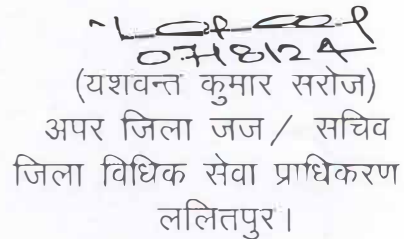 (यशवन्त कुमार सरोज)
अपर जिला जज / सचिव
जिला विधिक सेवा प्राधिकरण
ललितपुर।